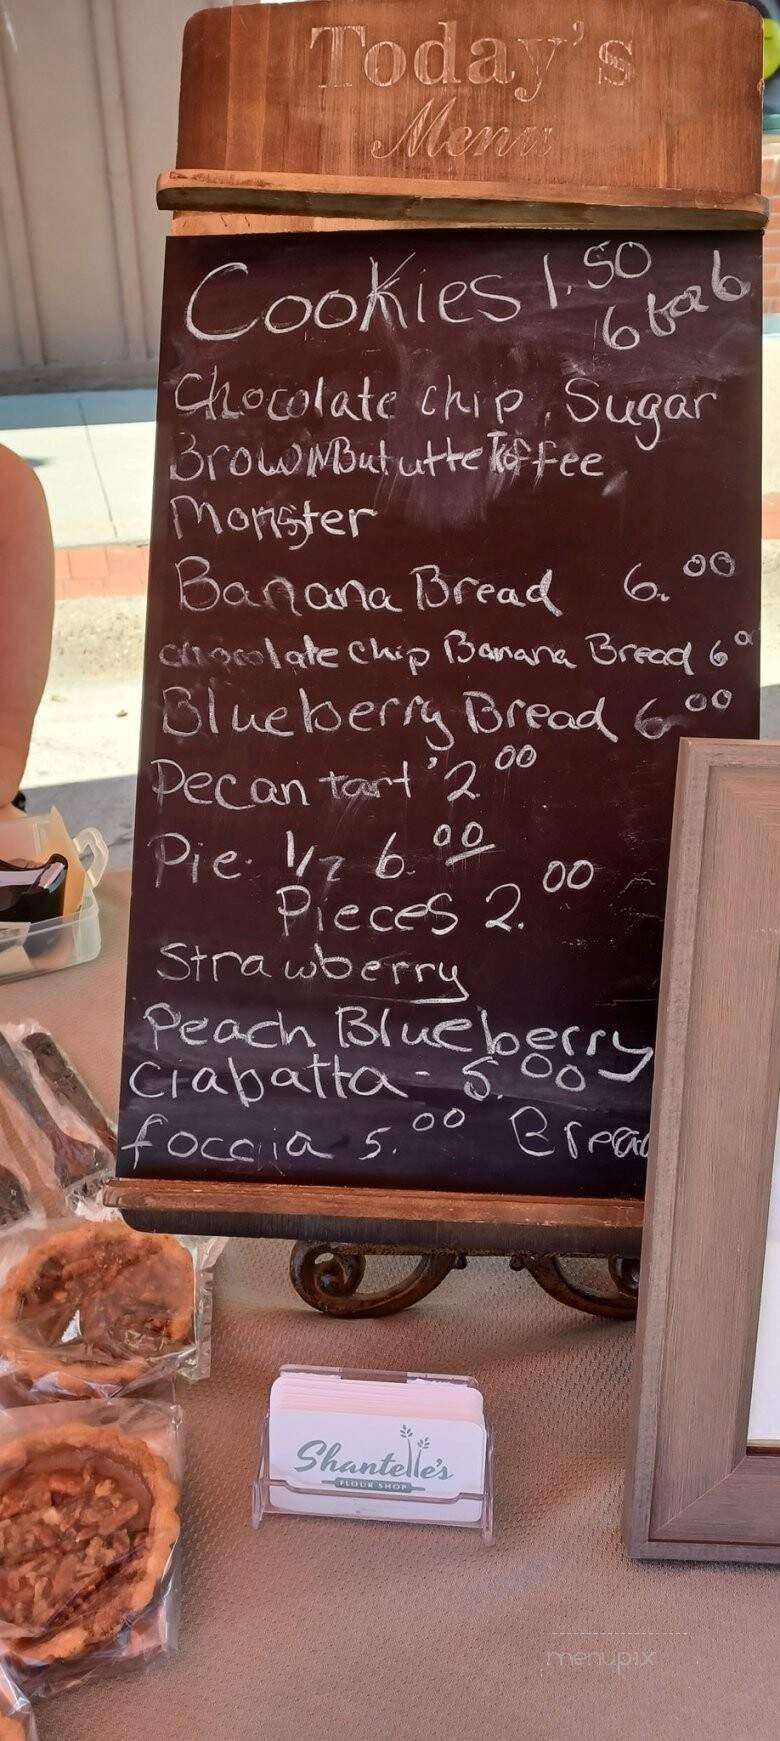 Today's
Menu
Cookies 1.50
6 for 6
Chocolate chip, Sugar
Brown Bututte Toffee
Monster
Banana Bread 6.00
chocolate chip Banana Bread 6
Blueberry Bread 6.00
Pecan tart 2.00
Pie 1/2 6.00
Pieces 2.00
Strawberry
Peach Blueberry
Ciabatta - 5.00
foccia 5.00 Bread
Shantelle's
FLOUR SHOP
menupix